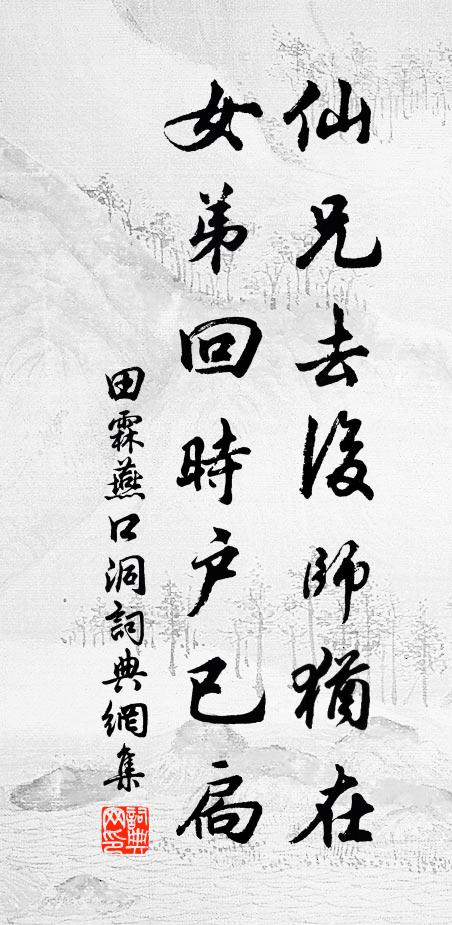 仙兄去後師猶在
女弟回時户已扃
田霖燕口洞詞典網集
詞典
网印